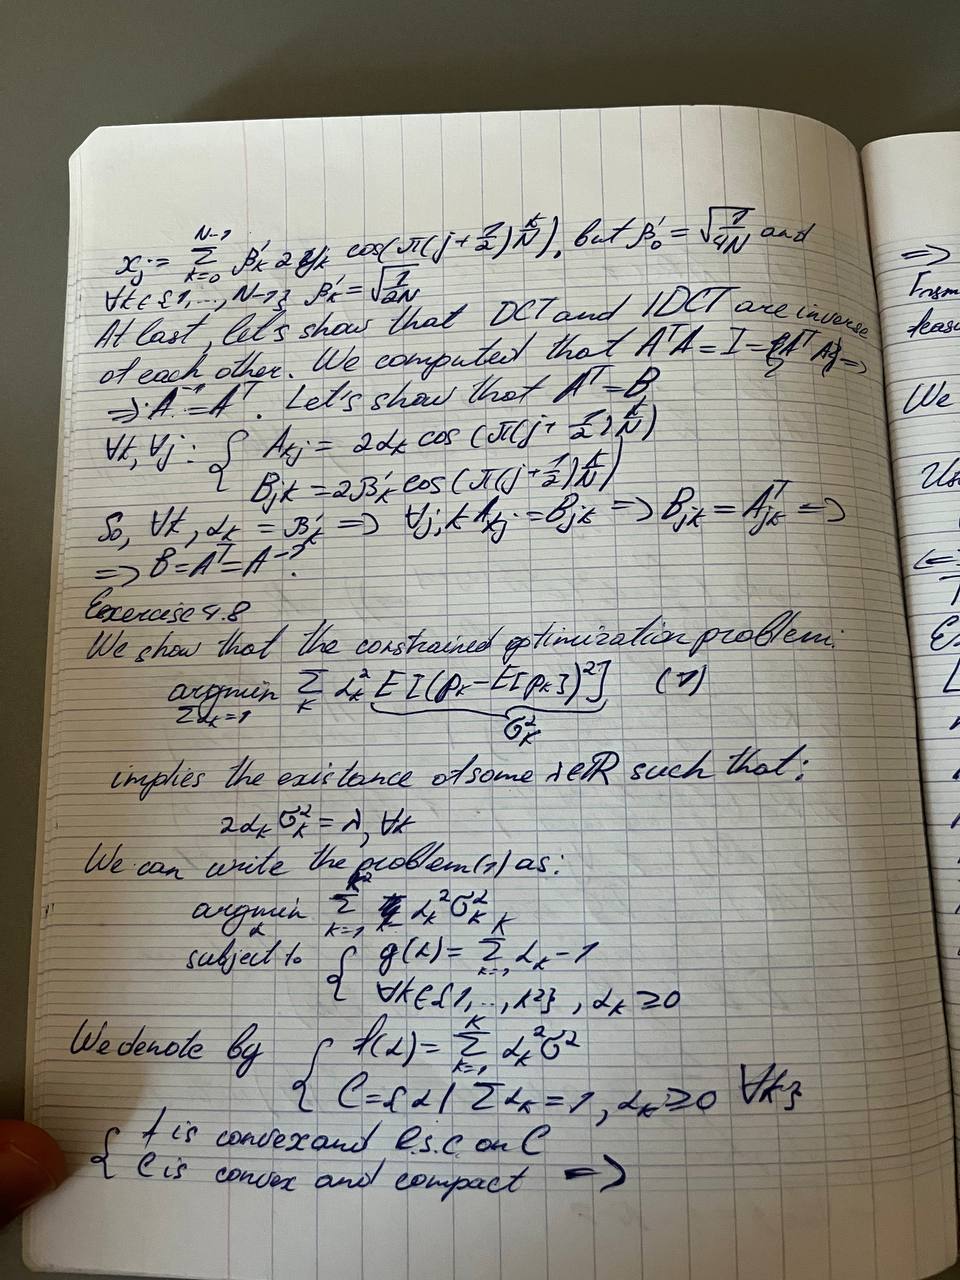 x_j = Σ_{k=0}^{N-1} β'_k 2 y_k cos(π(j+1/2) k/N), but β'_0 = √(1/4N) and
∀k∈{1,...,N-1} β'_k = √(1/2N)
At last, let's show that DCT and IDCT are inverse
of each other. We computed that A^T A = I =>
=> A^{-1} = A^T. Let's show that A^T = B
∀k, ∀j: { A_{kj} = 2α_k cos(π(j+1/2) k/N)
B_{jk} = 2β'_k cos(π(j+1/2) k/N)
So, ∀k, α_k = β'_k => ∀j,k A_{kj} = B_{jk} => B_{jk} = A^T_{jk} =>
=> B = A^T = A^{-1}.
Exercise 4.8
We show that the constrained optimization problem:
argmin_{Σα_k=1} Σ_k α_k^2 E[(p_k - E[p_k])^2] (1)
σ_k^2
implies the existance of some λ∈ℝ such that:
2α_k σ_k^2 = λ, ∀k
We can write the problem (1) as:
argmin_α Σ_{k=1}^{K} α_k^2 σ_k^2
subject to { g(α) = Σ_{k=1}^{K} α_k - 1
∀k∈{1,..,K}, α_k ≥ 0
We denote by { f(α) = Σ_{k=1}^{K} α_k^2 σ^2
C = {α | Σα_k = 1, α_k ≥ 0 ∀k}
{ f is convex and l.s.c. on C
C is convex and compact =>
=>
We